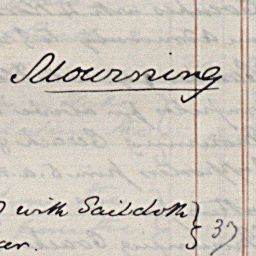 Mourning
with Sailcloth } 37